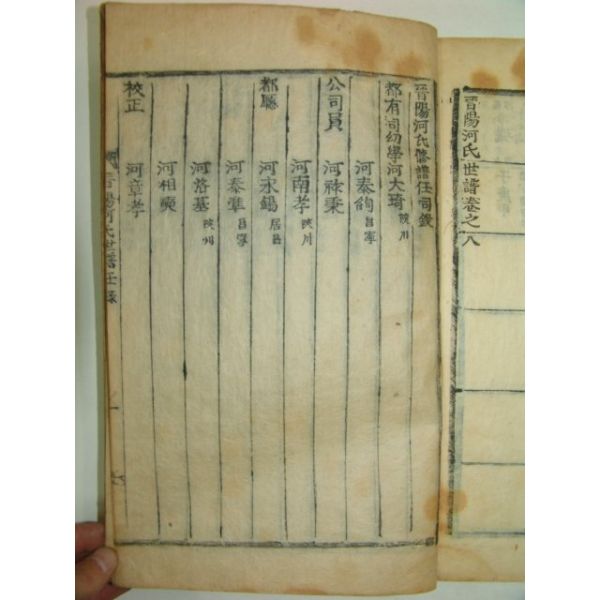 晉陽河氏世譜卷之八
晉陽河氏修譜任司錄
都有司幼學河大琦 陜川
河泰 昌寧
公司員 河祿秉
河南孝 陜川
都廳 河永錫 居昌
河泰 昌寧
河洛基 陜川
河相奭
校正 河章孝
晉陽河氏世譜 任錄